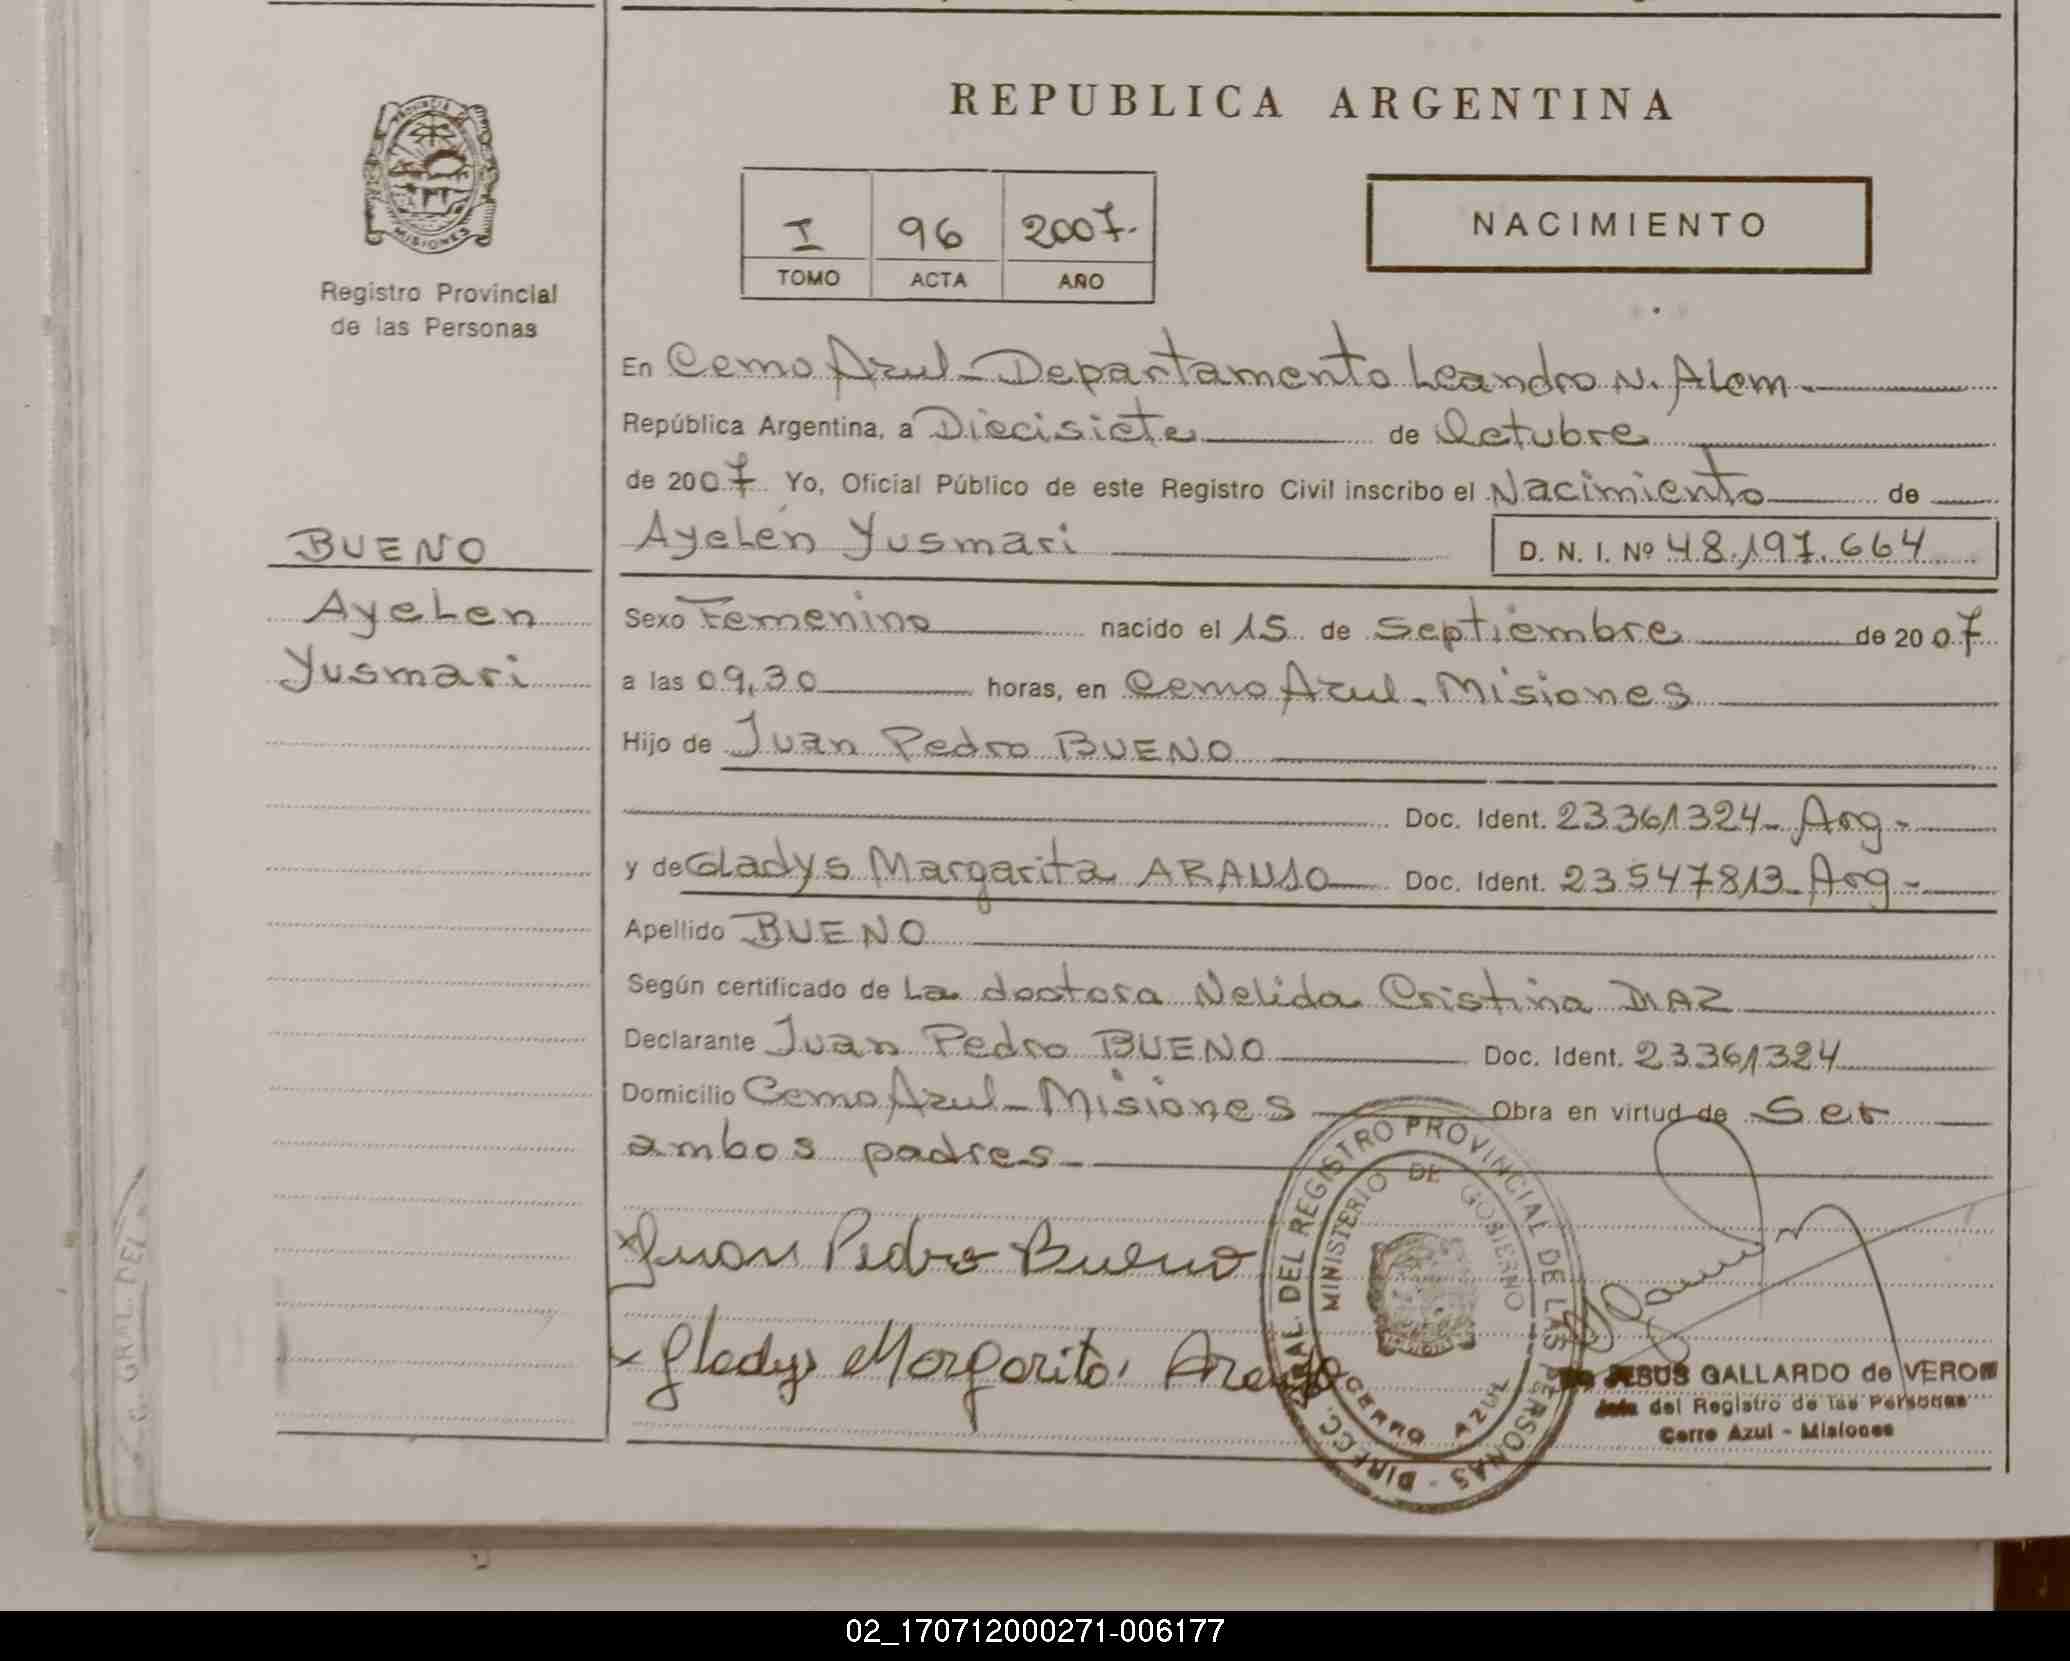 REPUBLICA ARGENTINA
PROVINCIA DE MISIONES
Registro Provincial
de las Personas
I 96 2007.
TOMO ACTA AÑO
NACIMIENTO
En Cerro Azul - Departamento Leandro N. Alem.
República Argentina, a Diecisiete de Octubre
de 2007 Yo, Oficial Público de este Registro Civil inscribo el Nacimiento de
Ayelén Yusmari D. N. I. Nº 48.197.664
BUENO
Ayelen
Yusmari
Sexo Femenino nacido el 15 de Septiembre de 2007
a las 09,30 horas, en Cerro Azul - Misiones
Hijo de Juan Pedro BUENO
Doc. Ident. 23361324 - Arg -
y de Gladys Margarita ARAUJO Doc. Ident. 23547813 - Arg -
Apellido BUENO
Según certificado de La doctora Nelida Cristina DIAZ
Declarante Juan Pedro BUENO Doc. Ident. 23361324
Domicilio Cerro Azul - Misiones Obra en virtud de Ser
ambos padres -
x Juan Pedro Bueno
x Gladys Margarita Araujo
DIRECC. GRAL. DEL REGISTRO PROVINCIAL DE LAS PERSONAS -
MINISTERIO DE GOBIERNO
CERRO AZUL
JESUS GALLARDO de VERON
Jefa del Registro de las Personas
Cerro Azul - Misiones
GRAL. DEL
02_170712000271-006177